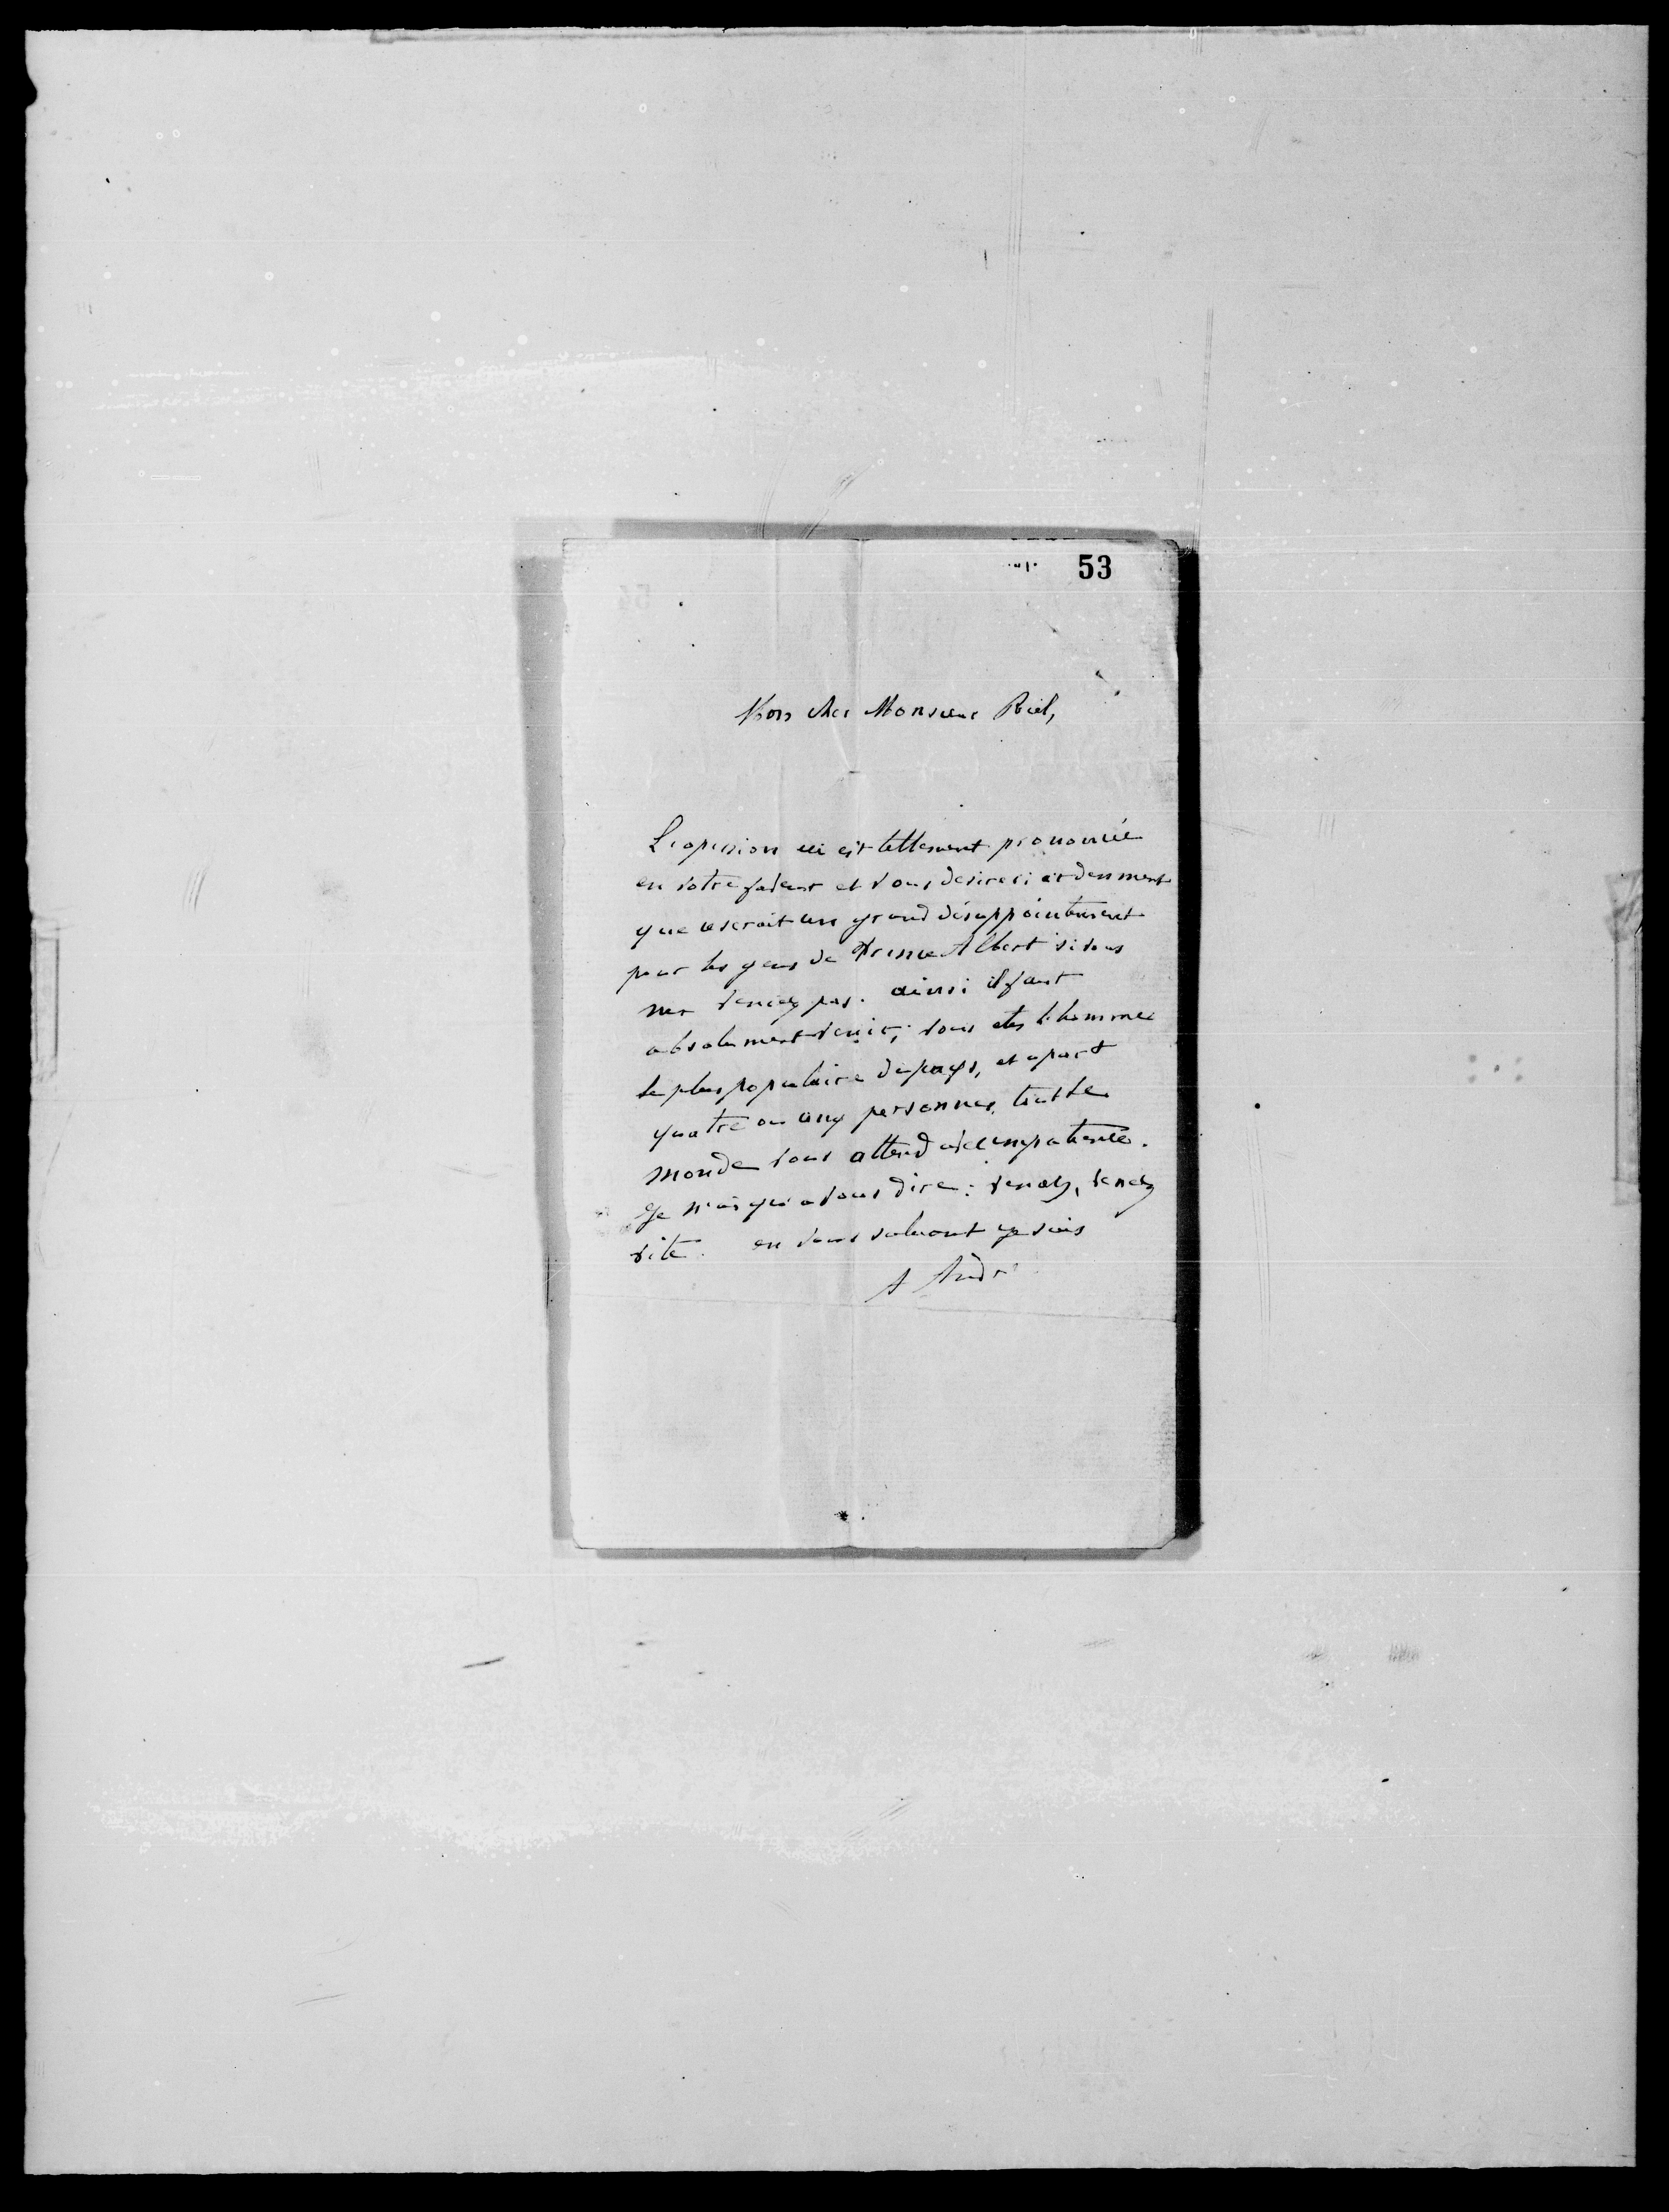 53
Mon cher Monsieur Riel,
L'opinion ici est tellement prononcée
en votre faveur et vous désire si ardemment
que ce serait un grand désappointement
pour les gens de Prince Albert si vous
ne veniez pas. ainsi il faut
absolument venir; vous etes l'homme
le plus populaire du pays, et apart
quatre ou cinq personnes tout le
monde vous attend avec impatience.
Je n'ai qu'a vous dire: venez, venez
vite. en vous saluant je suis
A André